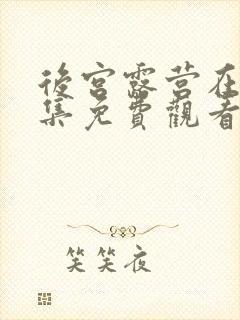 後宮露营在
集免費觀看
笑笑夜